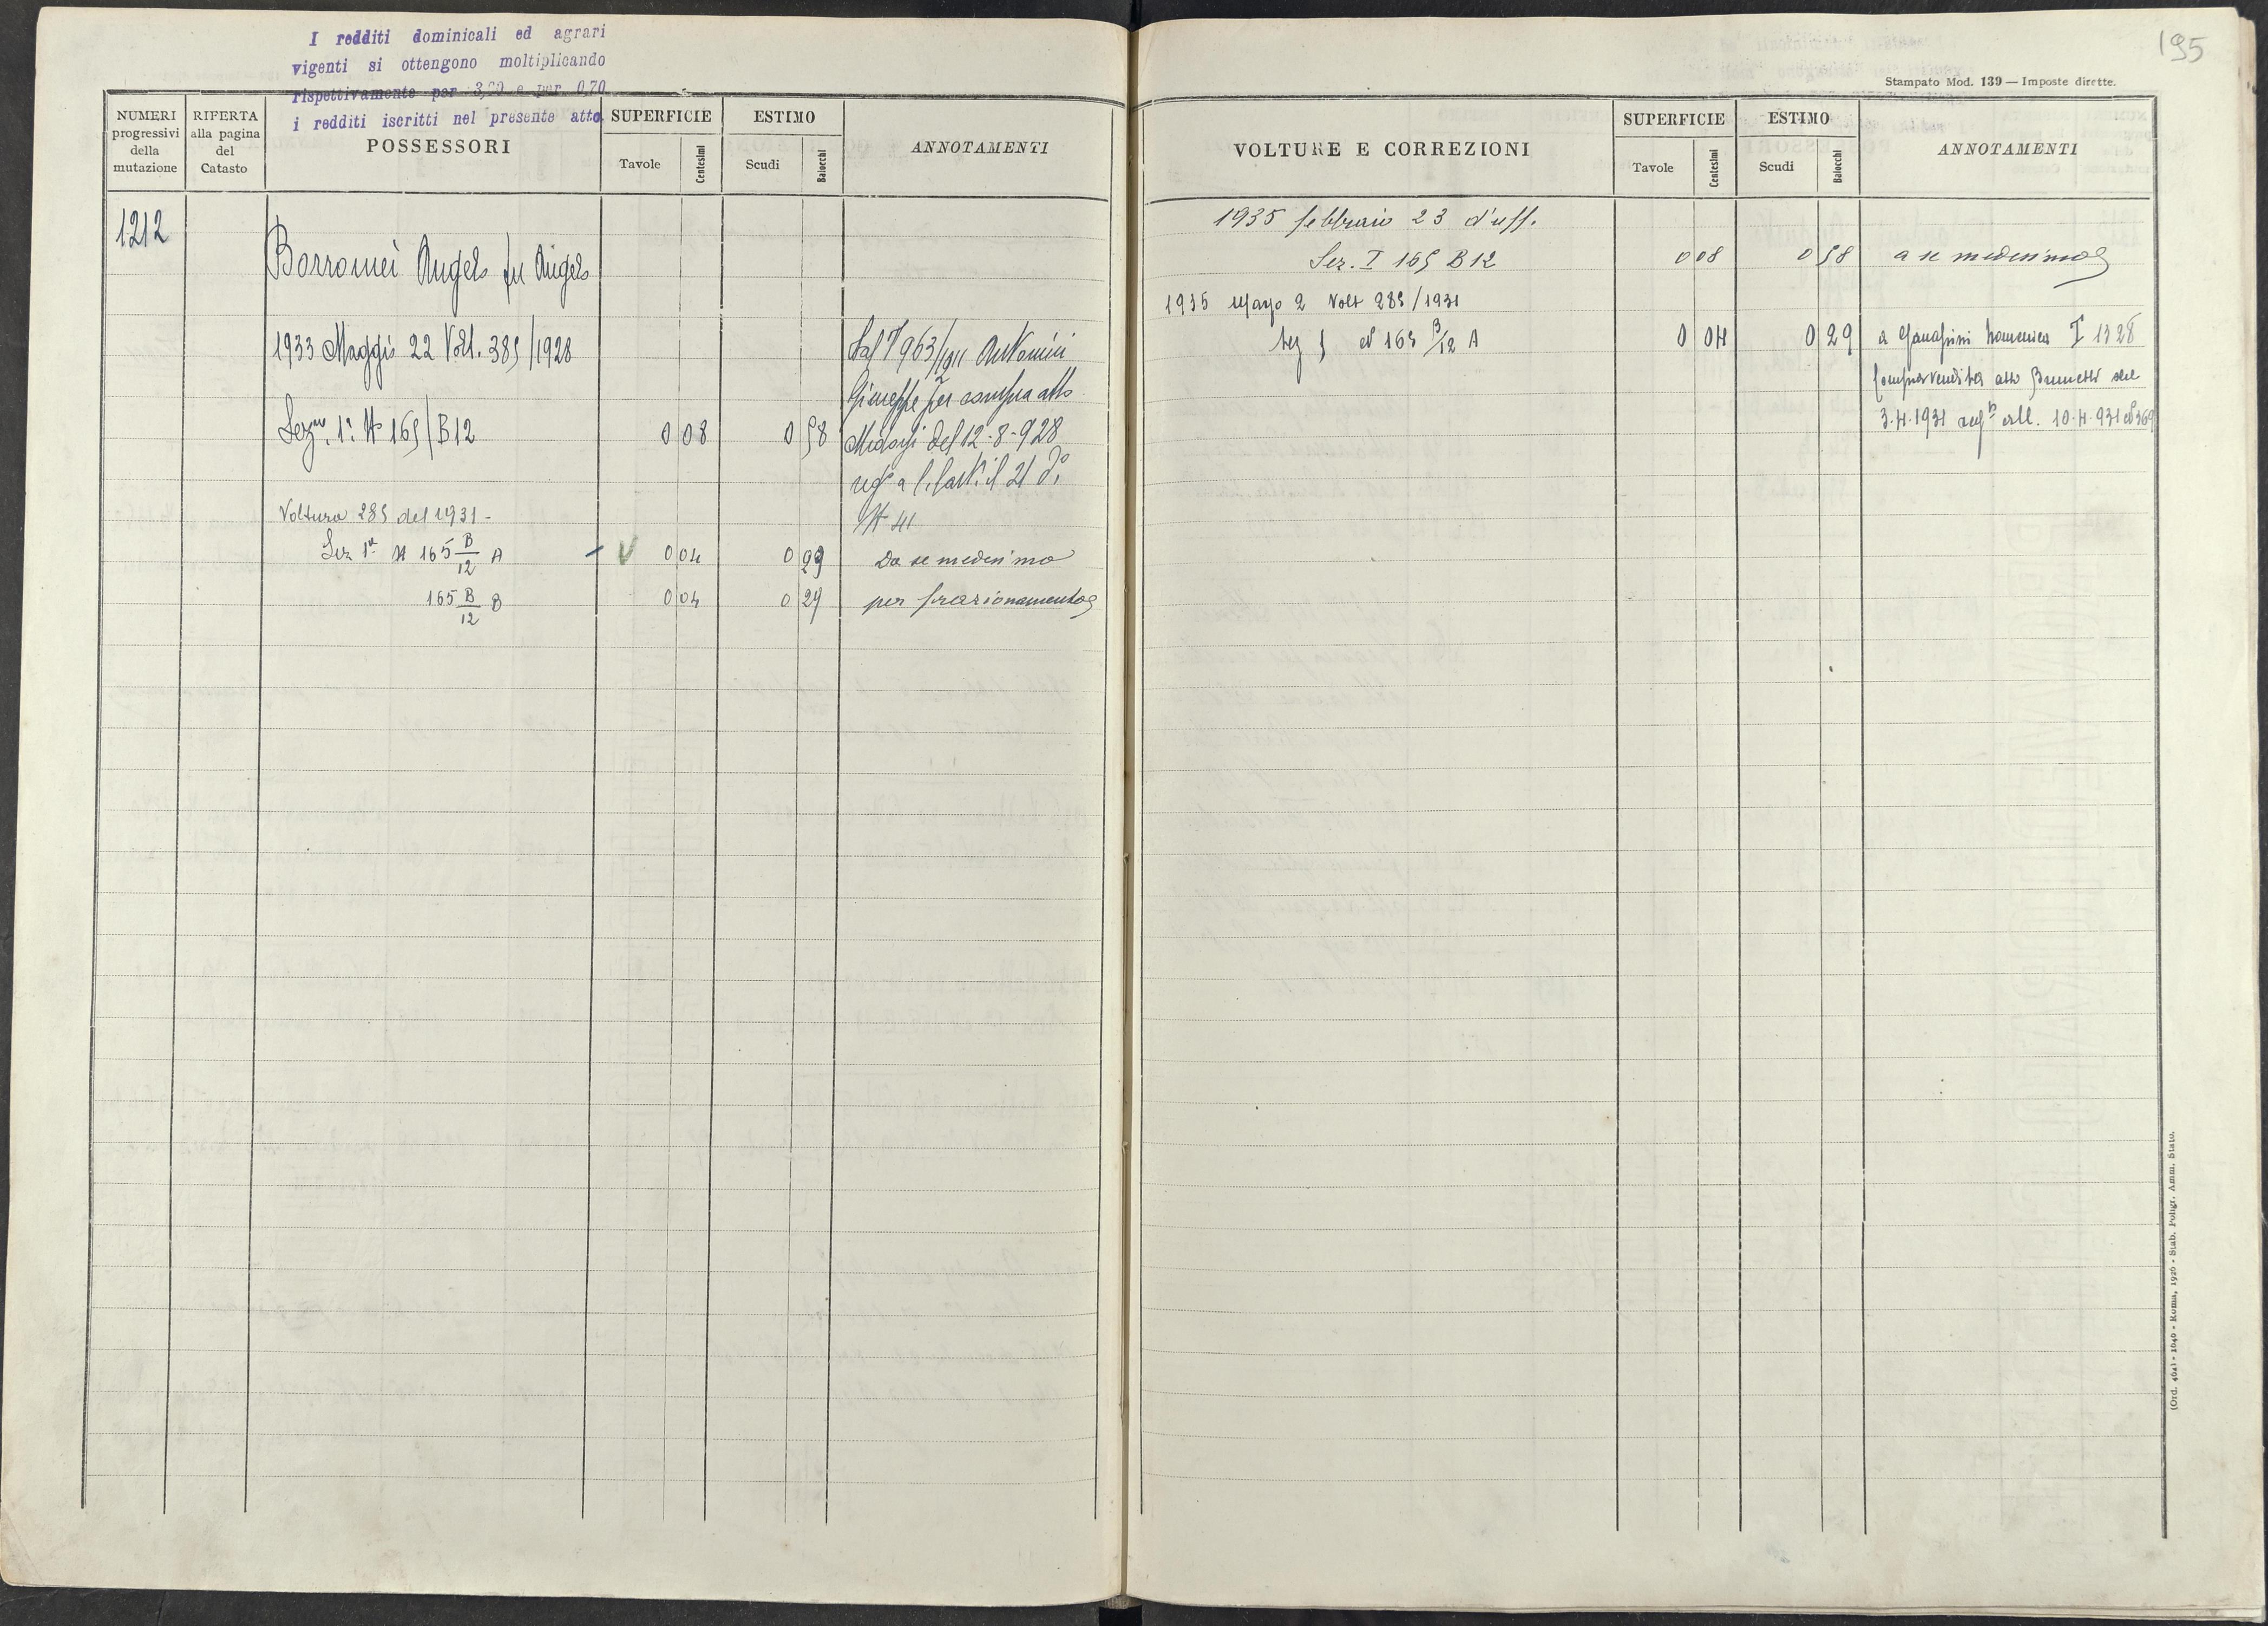 I redditi dominicali ed agrari
vigenti si ottengono moltiplicando
rispettivamente per 3,20 e per 0,70
i redditi iscritti nel presente atto
NUMERI progressivi della mutazione
RIFERTA alla pagina del Catasto
POSSESSORI
SUPERFICIE
Tavole
Centesimi
ESTIMO
Scudi
Baiocchi
ANNOTAMENTI
1212
Borromei Angelo fu Angelo
1933 Maggio 22 Volt. 385/1928
Dal 963/1911 Antonini
Giuseppe per compra atto
Sezne 1ª N 165/B12 0 08 0 58
del 12-8-928
a il 21 do
N 41
Voltura 285 del 1931-
Sez 1ª N 165 B/12 A 0 04 0 29 Da se medesimo
165 B/12 B 0 04 0 29 per frazionamento
195
Stampato Mod. 139 — Imposte dirette.
VOLTURE E CORREZIONI
SUPERFICIE
Tavole
Centesimi
ESTIMO
Scudi
Baiocchi
ANNOTAMENTI
1935 febbraio 23 d'uff.
Sez. I 165 B12 0 08 0 58 a se medesimo
1935 Mago 2 Volt 285/1931
Sez I N 165 B/12 A 0 04 0 29 a Domenica I 1328
Compravendita atto Brunetti del
3-4-1931 all. 10-4-931 N 369
(Ord. 464) - 1040 - Roma, 1926 - Stab. Poligr. Amm. Stato.